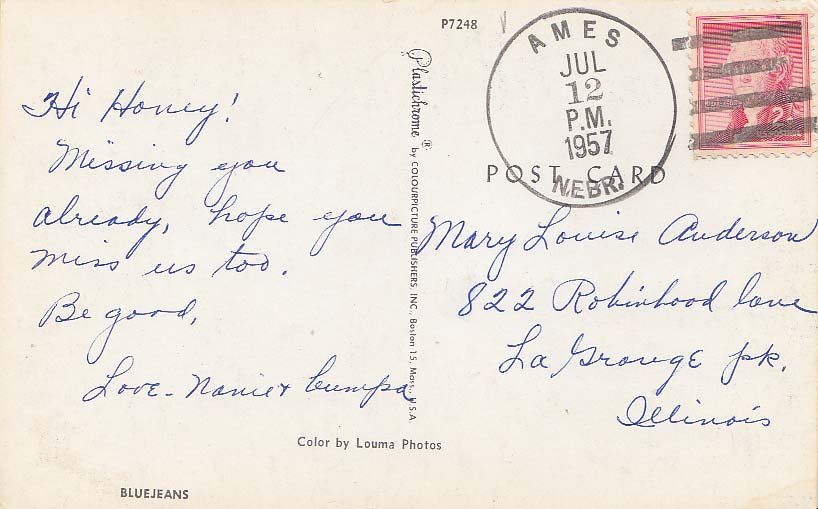 P7248
AMES
JUL
12
P.M.
1957
NEBR.
2¢
POST CARD
Hi Honey!
Missing you
already, hope you
miss us too.
Be good,
Love - Nanie + bumpa
Plastichrome ® by COLOURPICTURE PUBLISHERS, INC., Boston 15, Mass., U.S.A
Mary Louise Anderson
822 Robinhood lane
La Grange pk.
Illinois
Color by Louma Photos
BLUEJEANS